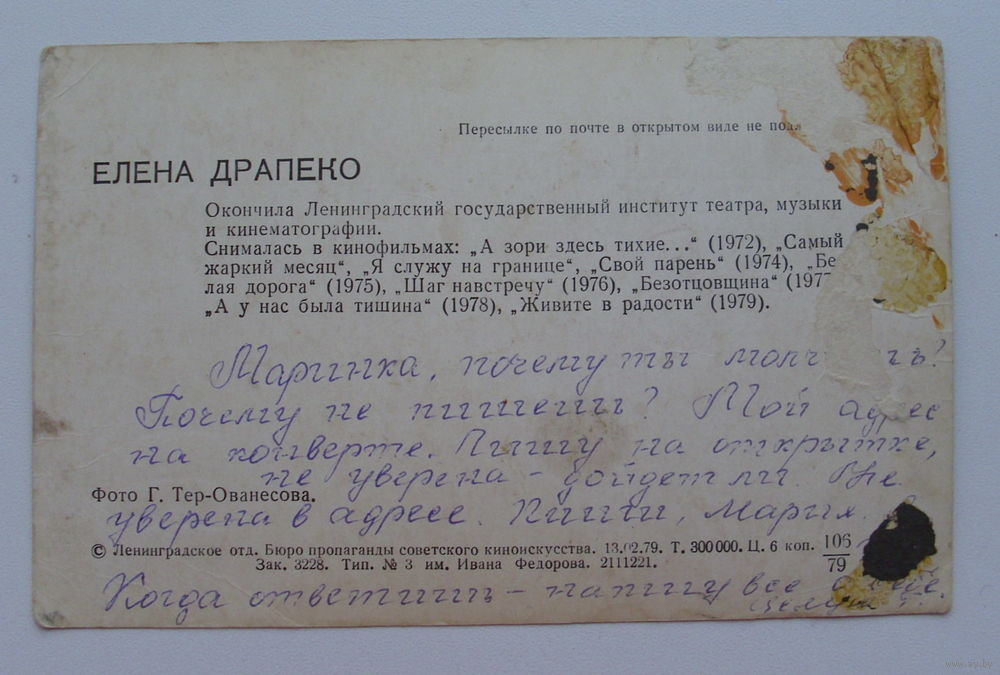 Пересылке по почте в открытом виде не подл
ЕЛЕНА ДРАПЕКО
Окончила Ленинградский государственный институт театра, музыки
и кинематографии.
Снималась в кинофильмах: „А зори здесь тихие...“ (1972), „Самый
жаркий месяц“, „Я служу на границе“, „Свой парень“ (1974), „Бе
лая дорога“ (1975), „Шаг навстречу“ (1976), „Безотцовщина“ (197
„А у нас была тишина“ (1978), „Живите в радости“ (1979).
Маринка, почему ты молч шь?
Почему не пишешь? Мой адрес
на конверте. Пишу на открытке,
не уверена – дойдет ли. Не
Фото Г. Тер-Ованесова.
уверена в адресе. Пиши, Мария.
© Ленинградское отд. Бюро пропаганды советского киноискусства. 13.02.79. Т. 300000. Ц. 6 коп. 106/79
Зак. 3228. Тип. № 3 им. Ивана Федорова. 2111221.
Когда ответишь – напишу все о себе.
Целую
www.ay.by